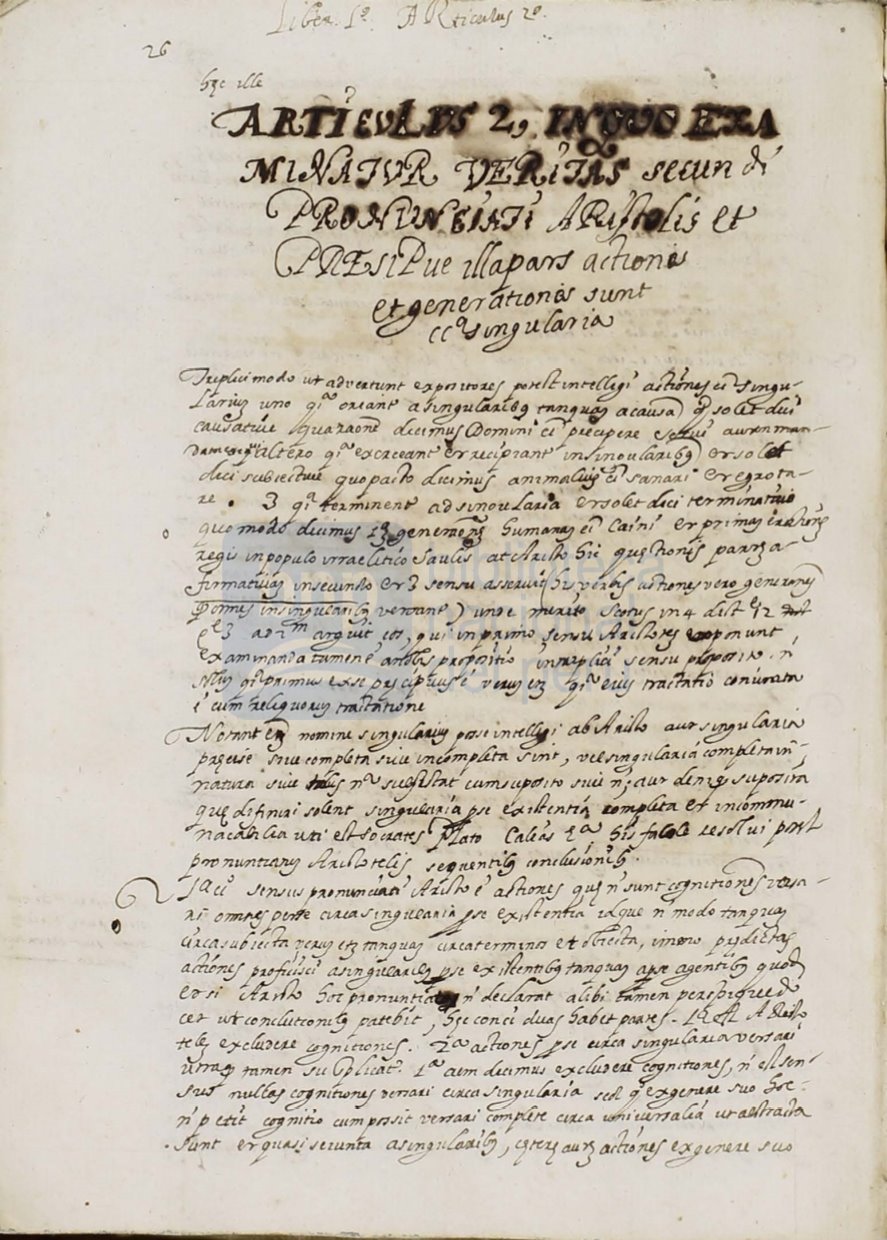 Liber. 1º. ARticulus 2º.
26
hęc ille
ARTICVLVS 2, IN QVO EXA
MINATVR VERITAS secundi
PRONVNCIATI ARistolis et
PRESIPue illa pars actiones
et generationes sunt
ccª singularia
Triplici modo ut advertunt expositores potest intelligi actiones eē singu-
larium uno qª oreant a singularibꝫ tanquam a causa qº solet dici
causative decimus Domini eē precipere servi
altero qª exerceant et recipiant in singularibꝫ et solet
dici subiective quo pacto decimus animalium eē sanari et egrota-
re. 3 qª terminent ad singularia et solet dici terminative
quo modo decimus generationem humanam eē Caini et primam
regis in populo israelitico Saulis at Aristo hic quęstionis partem a-
firmativam in secundo et 3 sensu asseruit (his verbis actiones vero generationes
omnes in singularibꝫ versant) unde merito Scotus in 4 dist 12
qe 3 ad 2m arguit eos, qui in primo sensu Aristotes exponunt,
examinanda tamen ē propositio in triplici sensu proposito. n
qª primus ex se pręcipuus ē verum etꝫ qª eius tractatio coniuncta
ē cum reliquorum tractatione
Notant etꝫ nomine singularium posse intelligi ab Aristo aut singularia
pręcise sive completa sive incompleta sint, vel singularia completa in
natura sive nº subsistat cum suposito sive n; aut deniqꝫ suposita
quę difiniri solent singularia pse existentia completa et incommu-
nacabilia uti est Socrates Plato Calias &ª, his facile resolvi potest
pronuntiatum Aristotelis sequentibꝫ conclusionibꝫ.
1ª cº sensus pronunciati Aristo ē actiones quę n sunt cognitiones versa-
ri omnes pse circa singularia pse existentia idque n modo tanquam
circa subiecta verum etꝫ tanquam circa terminos et obiecta, immo prędictas
actiones proficisci a singularibꝫ pse existentibꝫ tanquam a pse agentibꝫ quod
et si Aristo hoc pronuntiato n declarat alibi tamen perspique do
cet ut conclutionibꝫ patebit, hęc conci duas habet partes. 1ª est Aristo
telem excludere cognitiones. 2ª actiones pse circa singularia versari
utraqꝫ tamen sic explicatʳ. 1ª aem decimus excludere cognitiones, n est sen-
sus nullas cognitiones versari circa singularia sed qº ex genere suo hoc
n petit cognitio cum possit versari complete circa universalia ut abstracta
sunt et quasi seiuncta a singularibꝫ, cęterę autem actiones ex genere suo